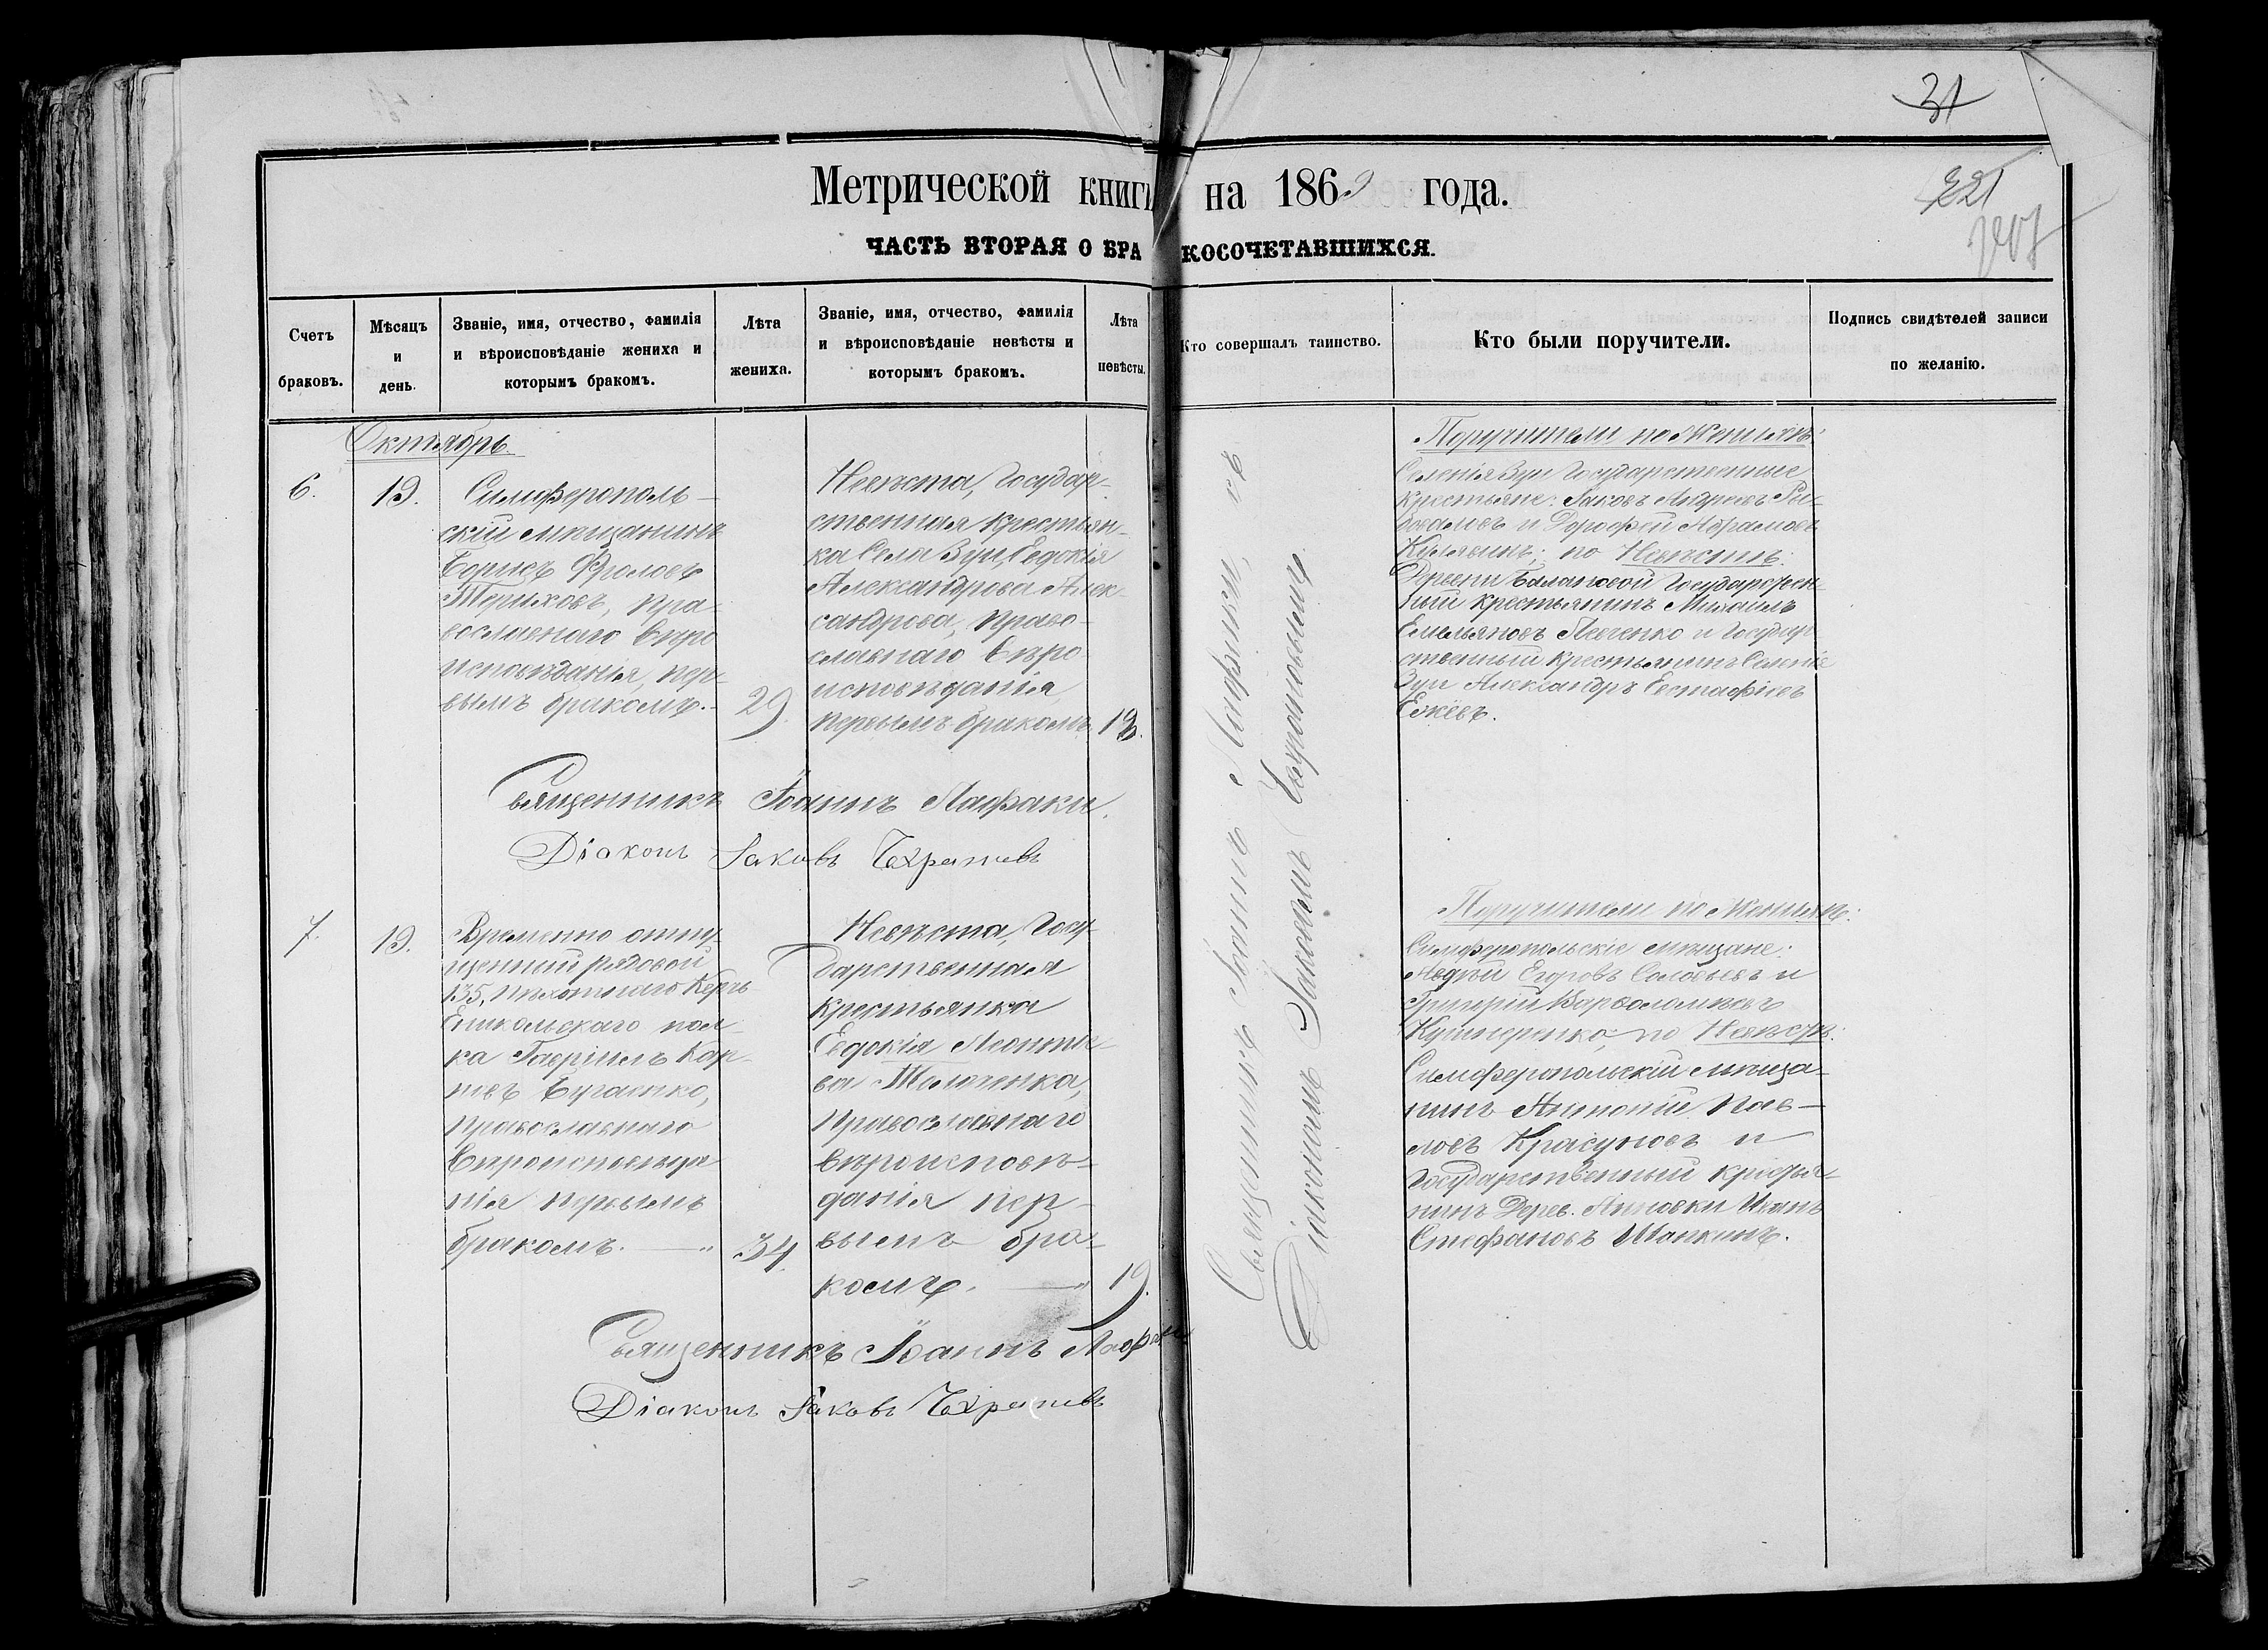 31
221
Метрической книги на 1869 года.
ЧАСТЬ ВТОРАЯ О БРАКОСОЧЕТАВШИХСЯ.
Счетъ браковъ.
Мѣсяцъ и день.
Званіе, имя, отчество, фамилія
и вѣроисповѣданіе жениха и
которымъ бракомъ.
Лѣта жениха.
Званіе, имя, отчество, фамилія
и вѣроисповѣданіе невѣсты и
которымъ бракомъ.
Лѣта невѣсты.
Кто совершалъ таинство.
Кто были поручители.
Подпись свидѣтелей записи
по желанію.
Октябрь.
6.
19.
Симферополь-
скій мѣщанинъ
Борисъ Фроловъ
Териховъ, пра-
вославнаго вѣро
исповѣданія, пер-
вымъ бракомъ.
29.
Невѣста, Государ-
ственная крестьян-
ка села Зуи, Евдокія
Александрова Алек-
сандрова, право-
славнаго вѣро-
исповѣданія,
первымъ бракомъ.
Священникъ Іоаннъ Лафаки.
Діаконъ Іаковъ Чехрановъ
Священникъ Іоаннъ Лафаки, съ
Діакономъ Іаковомъ Чехрановымъ.
Поручители по Женихѣ:
Селенія Зуи Государственные
крестьяне: Іаковъ Андреевъ
и Дорофей Абрамовъ
по Невѣстѣ:
Деревни Балановой Государствен-
ный крестьянинъ Михаилъ
Емельяновъ Левченко и Государ-
ственный крестьянинъ Селенія
Зуи Александръ Евстафіевъ
Ежевъ.
7.
19.
Временно отпу-
щенный рядовой
135, пѣхотнаго Керчь
Еникольскаго пол-
ка Гавріилъ Кар-
повъ Бугаенко,
православнаго
вѣроисповѣда
нія первымъ
бракомъ. — "
34.
Невѣста, Госу-
дарственная
крестьянка
Евдокія Леонтіе-
ва Толоченка,
православнаго
вѣроисповѣ-
данія пер-
вымъ бра-
комъ. — "
19.
Священникъ Іоаннъ Лафаки
Діаконъ Іаковъ Чехрановъ
Поручители по Женихѣ:
Симферопольскіе мѣщане:
Авдѣй Егоровъ Соловьевъ и
Григорій Варѳоломѣевъ
Кушнеренко, по Невѣстѣ:
Симферопольскій мѣща-
нинъ Антоній Пав-
ловъ Красуновъ и
Государственный крестья-
нинъ Дерев. Анновки Иванъ
Стефановъ Шапкинъ.